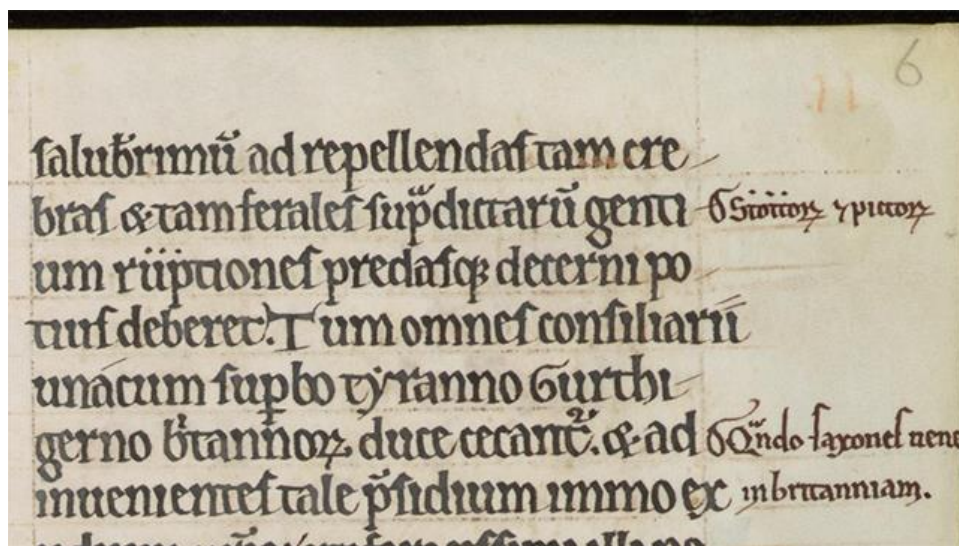 6
salub̄rimū ad repellendas tam cre
bras & tam ferales sup̄dictarū genti
um rüptiones predasq; decerni po
tius deberet. Tum omnes consiliarii
una cum sup̱bo tyranno Gurthi
gerno b̄tannoꝝ duce cecant᷑. & ad
inuenientes tale p̄sidium immo ex
Scottoꝝ ⁊ pictoꝝ
Qᷓndo saxones uene
in britanniam.